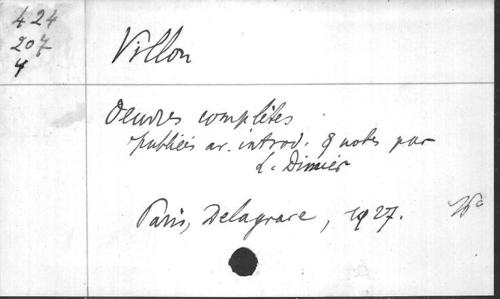 424
207
4
Villon
Oeuvres complètes
publiées av. introd. & notes par
L. Dimier
Paris, Delagrave, 1927.